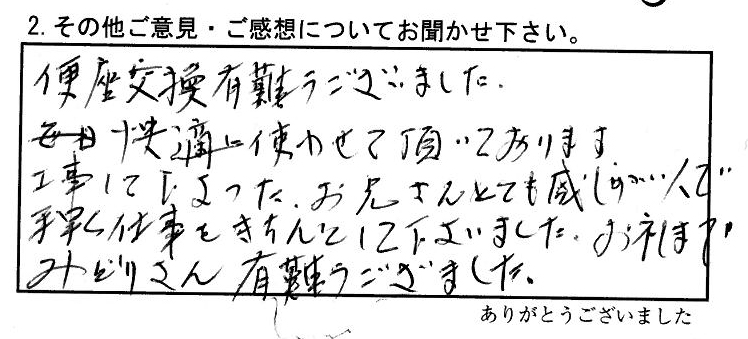 2. その他ご意見・ご感想についてお聞かせ下さい。
便座交換有難うございました.
毎日快適に使わせて頂いております
工事して下さった.お兄さんとても感じがいい人で
手早く仕事をきちんとして下さいました.お礼まで
みどりさん 有難うございました。
ありがとうございました